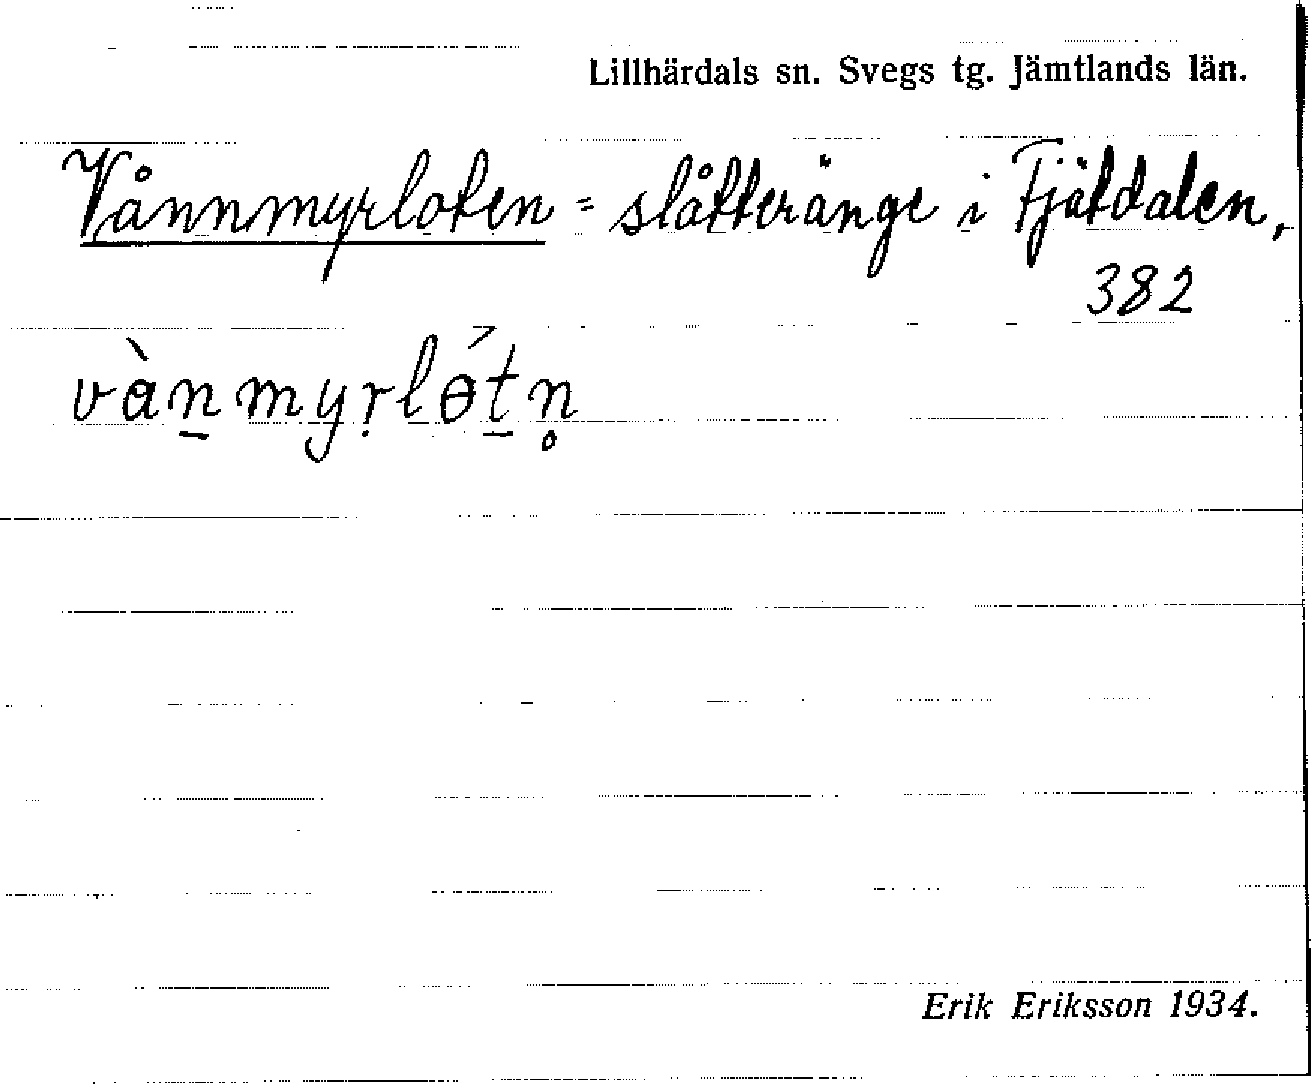 Lillhärdals sn. Svegs tg. Jämtlands län.
Vånnmyrloten = slåtteränge i Fjätdalen,
382
vàn̠myṛlɵ́t̠n̥
Erik Eriksson 1934.